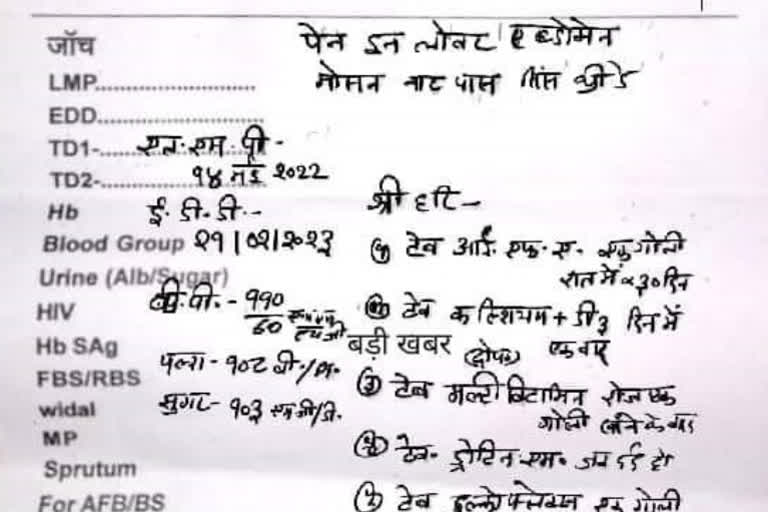 जाँच
पेन इन लोवर एब्डोमेन
LMP............................
मोसन बाद पास
EDD............................
TD1-............................
एल. एम. पी -
TD2-............................
१४ मई २०२२
Hb
ई. डी. डी. -
श्री हरि -
Blood Group २१/०२/२०२३
① टेब आई. एफ. ए. एक गोली
रात में × ३० दिन
Urine (Alb/Sugar)
HIV
बी. पी. - ११०
६०
② टेब कल्शियम + डी ३ दिन में
एक बार
Hb SAg
बड़ी खबर
पल्स - १०८ बी./मि.
FBS/RBS
③ टेब मल्टी विटामिन रोज एक
गोली खाने के बाद
सुगर - १०३ एम जी/डी.
widal
MP
④ टेब. ड्रोटिन एम. जब दर्द हो
Sprutum
For AFB/BS
⑤ टेब एक गोली